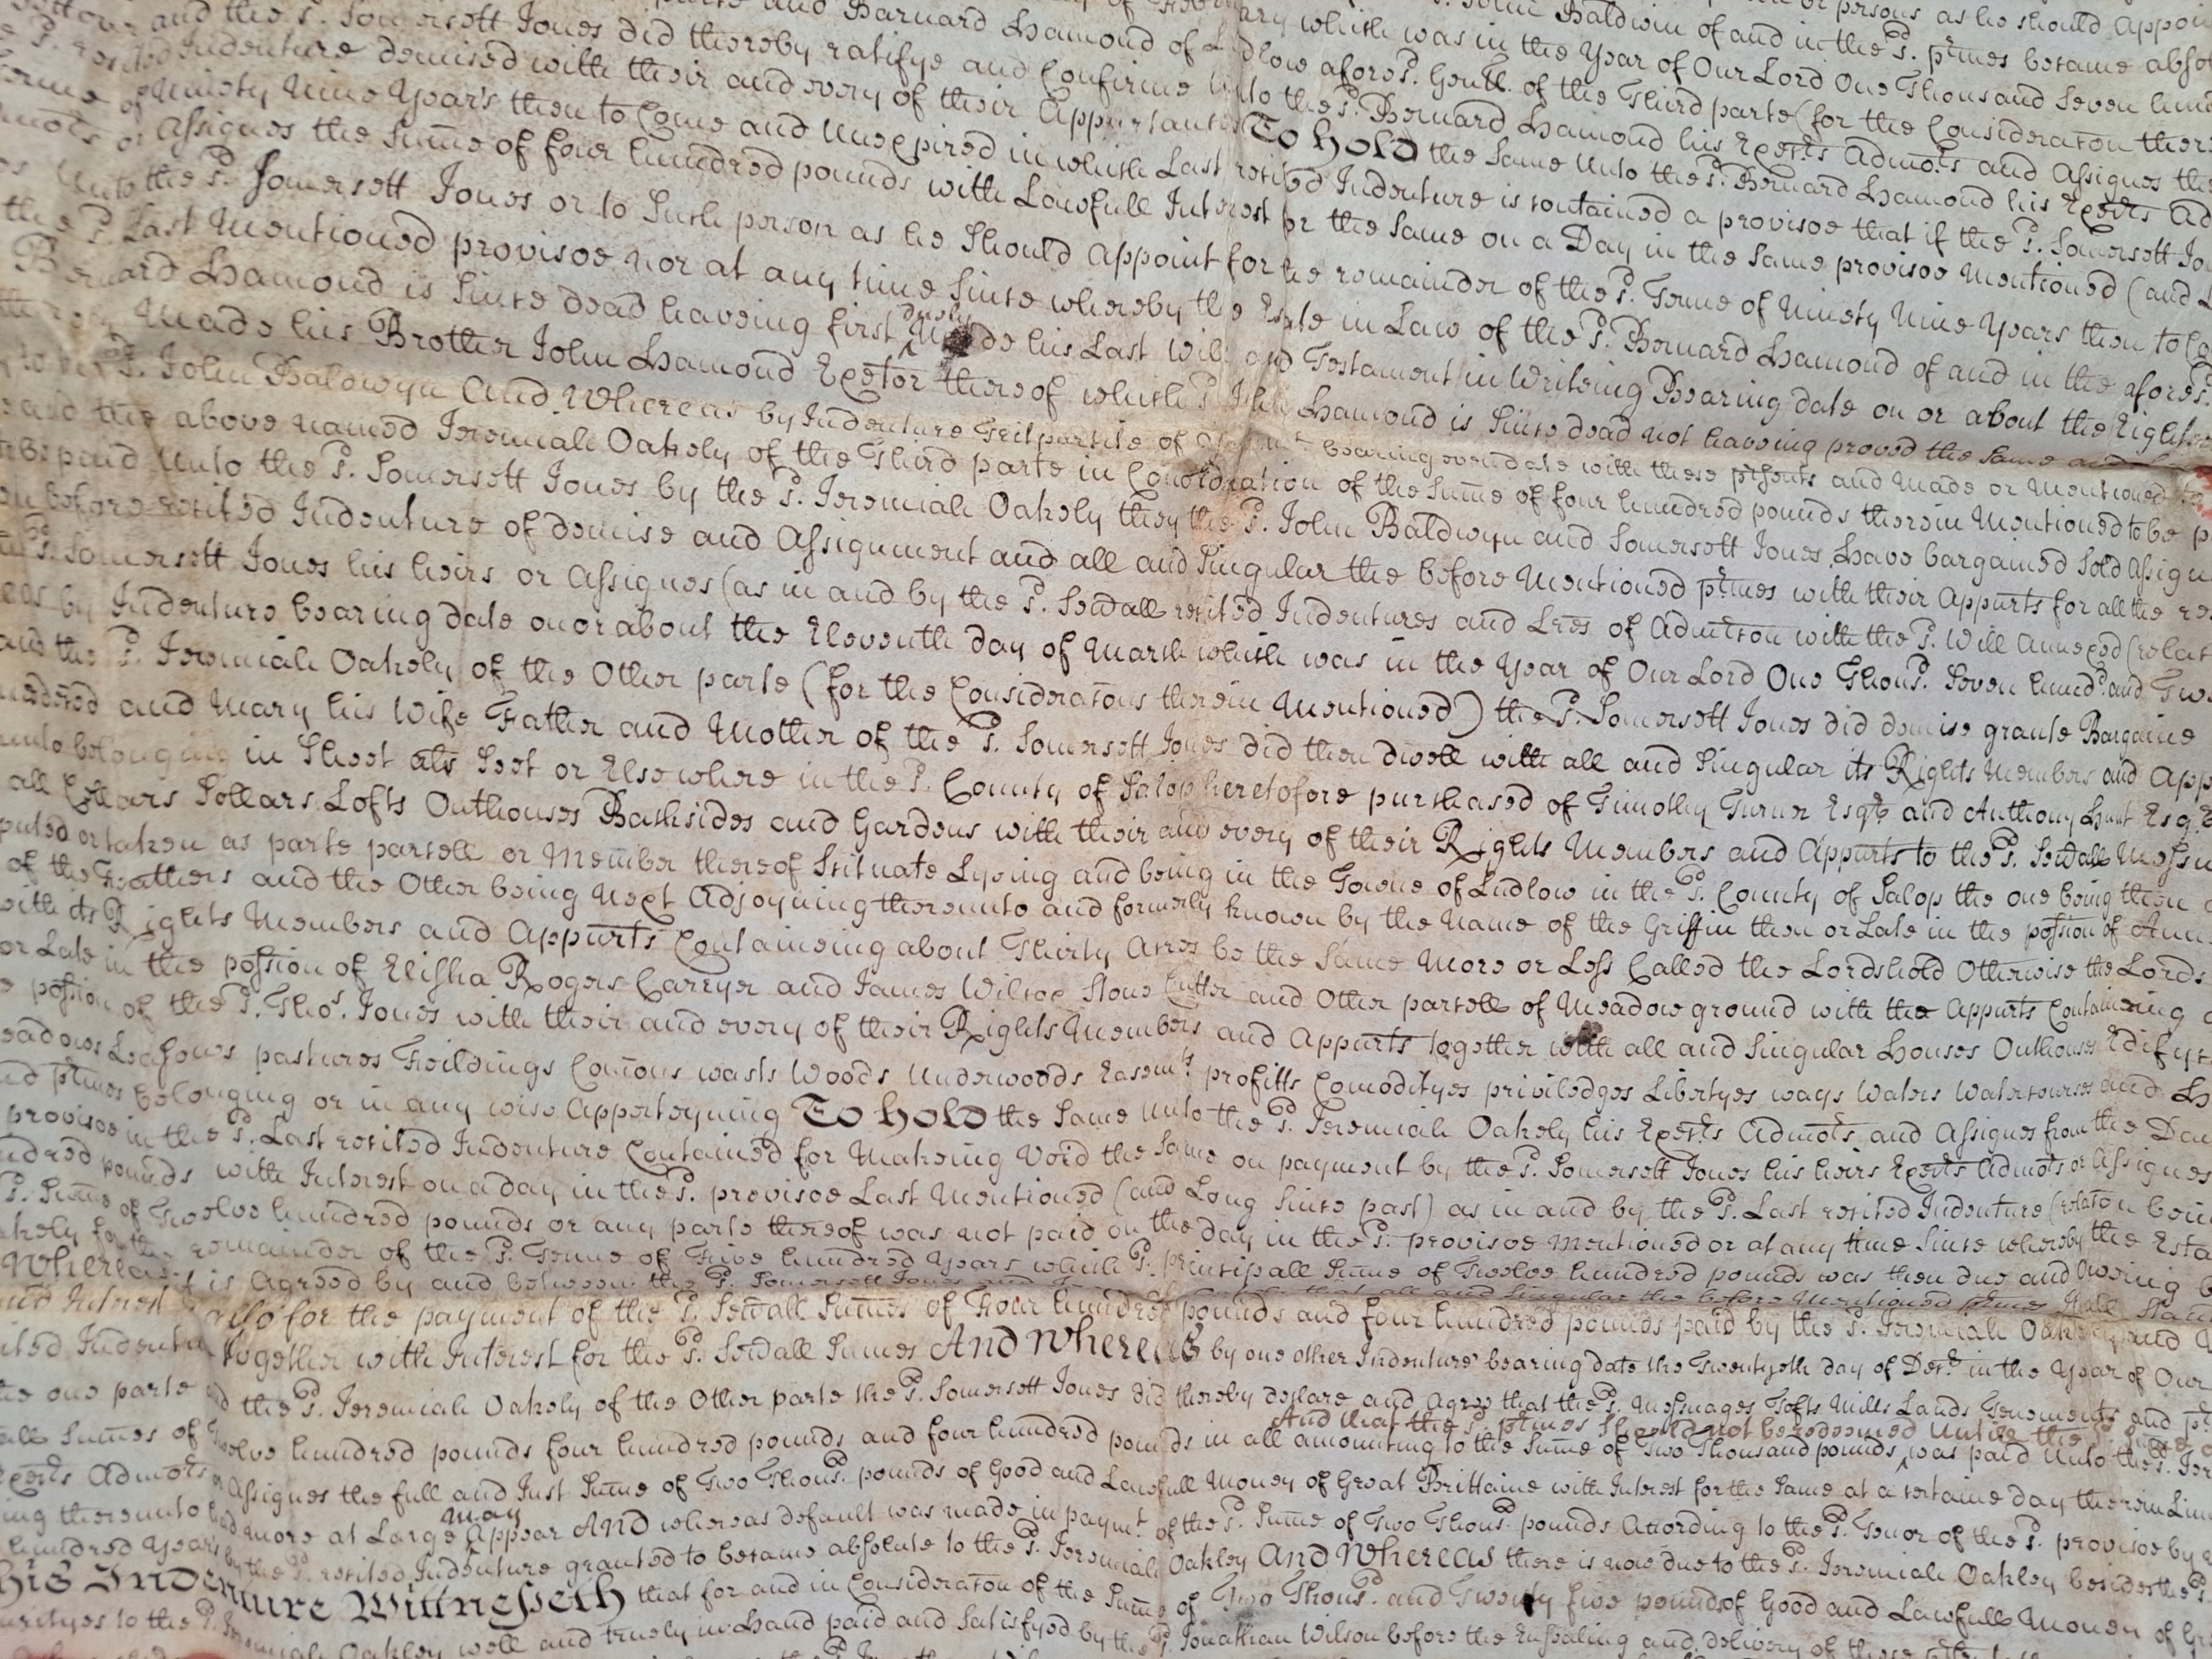 John Baldwin of and in the sd. prmes became absol
and the sd. Somersett Jones did thereby ratifye and Confirme unto the sd. Bernard Hamond his Exectrs Admors and Assignes the
Indenture demised with their and every of their Appurtances To hold the same unto the sd. Bernard Hamond his Exectrs Ad
of Ninety Nine Year's then to Come and Unexpired in which Last recited Indenture is contained a provisoe that if the sd. Somersett Jo
Assignes the Sume of four hundred pounds with Lawfull Interest for the same on a Day in the same provisoe Mentioned (and L
Unto the sd. Somersett Jones or to Such person as he should Appoint for the remainder of the sd. Terme of Ninety Nine Years then to Co
the sd. Last Mentioned provisoe nor at any time since whereby the Estate in Law of the sd. Bernard Hamond of and in the afores.
Bernard Hamond is Since dead haveing first duely Made his Last Will and Testament in Writeing Bearing date on or about the Eight
Made his Brother John Hamond Exector thereof which sd. John Hamond is Since dead not haveing proved the same and
sd. John Baldwyn And Whereas by Indenture Tripartite of bearing even date with these psents and Made or Mentioned to
and the above named Jeremiah Oakely of the Third parte in Consideration of the Sume of four hundred pounds therein Mentioned to be p
be paid Unto the sd. Somersett Jones by the sd. Jeremiah Oakely they the sd. John Baldwyn and Somersett Jones Have bargained Sold Assign
before recited Indenture of demise and Assignment and all and Singular the before Mentioned prmes with their Appurts for all the re
sd. Somersett Jones his heirs or Assignes (as in and by the sd. Sevrall recited Indentures and Lres of Admcon with the sd. Will Annexed (relat
by Indenture bearing date on or about the Eleventh day of March which was in the Year of Our Lord One Thousd. Seven hundd. and Twe
and the sd. Jeremiah Oakely of the Other parte (for the Consideratons therein Mentioned) the sd. Somersett Jones did demise grante Bargaine
and Mary his Wife Father and Mother of the sd. Somersett Jones did then dwell with all and Singular its Rights Members and App
unto belonging in Sheet als Seet or Elsewhere in the sd. County of Salop heretofore purchased of Timothy Turner Esqr and Anthony Hunt Esqr
all Cellars Sollars Lofts Outhouses Backsides and Gardens with their and every of their Rights Members and Appurts to the sd. Sevrall Messu
puted or taken as parte parcell or Member thereof Scituate Lyeing and being in the Towne of Ludlow in the sd. County of Salop the one being then
of the Feathers and the Other being Next Adjoyning thereunto and formerly known by the Name of the Griffin then or Late in the possion of Ann
with its Rights Members and Appurts Containeing about Thirty Acres be the Same More or Less Called the Lordshold Otherwise the Lords
or Late in the possion of Elisha Rogers Carryer and James Wilcox Stone Cutter and Other parcell of Meadow ground with the Appurts Containeing
possion of the sd. Thos. Jones with their and every of their Rights Members and Appurts together with all and Singular Houses Outhouses Edifyc
eadows Leasows pastures Feildings Comons wasts Woods Underwoods Easemts. profitts Comodityes priviledges Libertyes ways Waters Watercourses and H
prmes belonging or in any wise Apperteyning To hold the Same unto the sd. Jeremiah Oakely his Exectrs Admors and Assignes from the Day
provisoe in the sd. Last recited Indenture Contained for Makeing Void the Same on payment by the sd. Somersett Jones his heirs Exectrs Admors or Assignes
ndred pounds with Interest on a day in the sd. provisoe Last Mentioned (and Long Since past) as in and by the sd. Last recited Indenture (relaton bein
sd. Sume of Twelve hundred pounds or any parte thereof was not paid on the day in the sd. provisoe Mentioned or at any time Since whereby the Esta
akely for the remainder of the sd. Terme of Five hundred Years which sd. principall Sume of Twelve hundred pounds was then due and Oweing
Whereas it is Agreed by and between the sd. Somersett Jones and that all and Singular the before Mentioned prmes Shall Stand
and Interest also for the payment of the sd. Sevrall Sumes of Four hundred pounds and four hundred pounds paid by the sd. Jeremiah Oakely and
ited Indentu together with Interest for the sd. Sevrall Sumes And Whereas by one other Indenture bearing date the Twentyeth day of Decr. in the Year of Our
the one parte and the sd. Jeremiah Oakely of the Other parte the sd. Somersett Jones did thereby declare and Agree that the sd. Messuages Tofts Mills Lands Tenements and pr
And that the sd. prmes should not be redeemed Untill the sd. Sume
all Sumes of Twelve hundred pounds four hundred pounds and four hundred pounds in all amounting to the Sume of Two Thousand pounds was paid Unto the sd. Jer
Exectrs Admors or Assignes the full and Just Sume of Two Thousd. pounds of Good and Lawfull Money of Great Brittaine with Interest for the Same at a certaine day therein Lim
ing thereunto had more at Large may Appear And whereas default was made in paymt. of the sd. Sume of Two Thousd. pounds According to the sd. Tenor of the sd. provisoe by
hundred Years by the sd. recited Indenture granted to became absolute to the sd. Jeremiah Oakley And Whereas there is now due to the sd. Jeremiah Oakley besides the sd.
his Indenture Wittnesseth that for and in Consideraton of the Sume of Two Thousd. and Twenty five pounds of Good and Lawfull Money of Gr
urityes to the sd. Jeremiah Oakley well and truely in hand paid and Satisfyed by the sd. Jonathan Wilson before the Ensealing and delivery of these